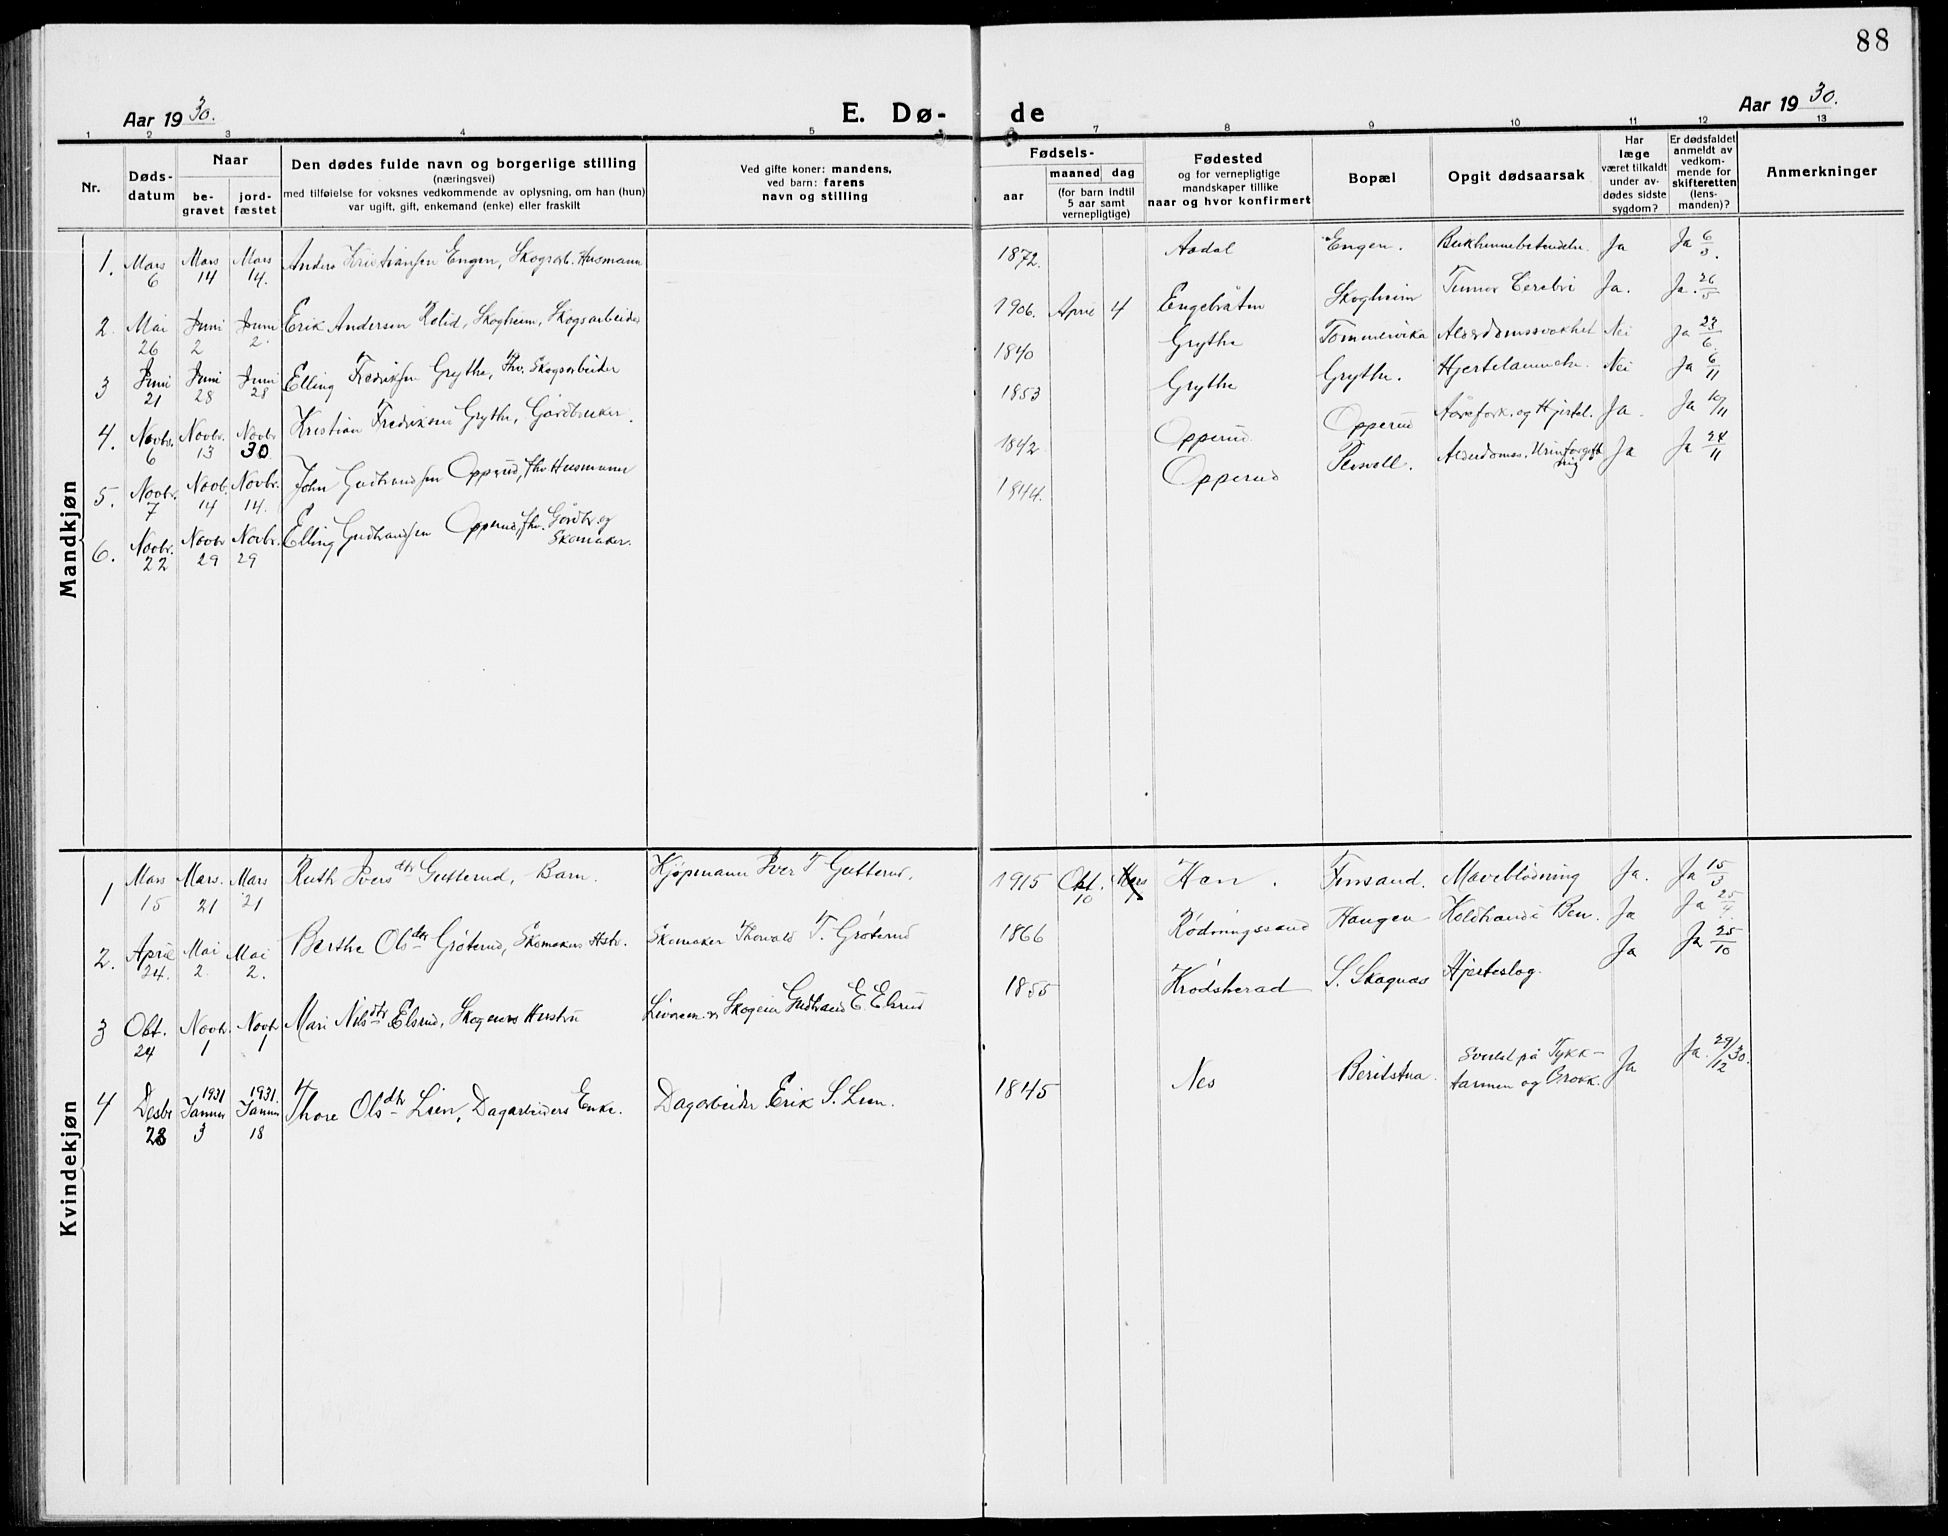 88
Aar 1930.
E. Dø-
de
Aar 1930.
1 2 3 4 5 6 7 8 9 10 11 12 13
Nr.
Døds-
datum
Naar
be-
gravet
jord-
fæstet
Den dødes fulde navn og borgerlige stilling
(næringsvei)
med tilføielse for voksnes vedkommende av oplysning, om han (hun)
var ugift, gift, enkemand (enke) eller fraskilt
Ved gifte koner: mandens,
ved barn: farens
navn og stilling
Fødsels-
aar
maaned dag
(for barn indtil
5 aar samt
vernepligtige)
Fødested
og for vernepligtige
mandskaper tillike
naar og hvor konfirmert
Bopæl
Opgit dødsaarsak
Har
læge
været tilkaldt
under av-
dødes sidste
sygdom?
Er dødsfaldet
anmeldt av
vedkom-
mende for
skifteretten
(lens-
manden)?
Anmerkninger
Mandkjøn
1. Mars 6 Mars 14 Mars 14. Anders Kristiansen Engen, Skogsarb. Husmann 1872. Aadal Engen. Ja Ja 6/3.
2. Mai 26 Juni 2 Juni 2. Erik Andersen Rolid, Skogheim, Skogsarbeider 1906. April 4 Engebråten Skogheim Tumor Cerebri Ja. Ja. 26/5
3 Juni 21 Juni 28 Juni 28 Elling Fredriksen Grythe, fhv. Skogsarbeider 1840 Grythe Tømmervika Alderdomssvakhet Nei Ja 23/6.
4. Novbr. 6 Novbr. 13 Novbr 30 Kristian Fredriksen Grythe, Gårdbruker. 1853 Grythe Grythe. Hjertelammelse. Nei Ja 6/11
5. Novbr. 7 Novb. 14 Novbr. 14. John Gudbrandsen Opperud, fhv. Husmann 1842 Opperud Opperud Årefork. og Hjertel. Ja. Ja 10/11
6. Novbr. 22 Novbr 29 Novbr. 29 Elling Gudbrandsen Opperud, fhv. Gårdbr og Skomaker. 1844. Opperud Persvoll. Alderdomss. Urinforgiftnig Ja Ja 24/11
Kvindekjøn
1 Mars 15 Mars. 21 Mars 21 Ruth Iversdtr Gutterud, Barn. Kjøpmann Iver T Gutterud. 1915 Okt. 10 Hen. Finsand. Maveblødning Ja. Ja 15/3
2. April 24. Mai 2 Mai 2. Berthe Olsdtr Grøterud, Skomakers Hstr. Skomaker Thorvald T. Grøterud 1866 Haugen Koldbrand i Ben. Ja Ja 25/4
3 Okt. 24 Novbr. 1 Novbr 1 Mari Nilsdtr Elsrud, Skogeiers Hustru Skogeier Gudbrand E. Elsrud 1855 Krødsherad S. Skagnæs Hjerteslag. Ja Ja 25/10
4 Desbr 28 1931 Januar 3 1931. Januar 18 Thore Olsdtr Lien, Dagarbeiders Enke. Dagarbeider Erik S. Lien. 1845 Nes Beritstua. Svulst på Tykk-
tarmen og Brokk. Ja Ja. 29/12 30.